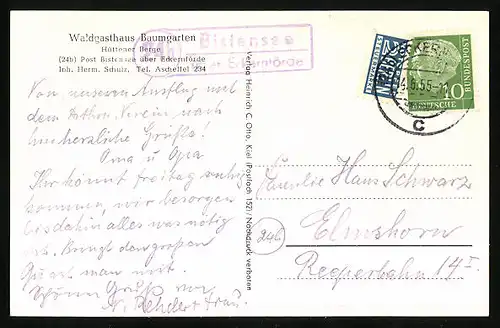 Waldgasthaus Baumgarten
Hüttener Berge
(24b) Post Bistensee über Eckernförde
Inh. Herm. Schulz, Tel. Ascheffel 234
(24b) Bistensee
über Eckernförde
Von unserem Ausflug mit
dem Verein noch
herzliche Grüße!
Oma u Opa
Ihr könnt Freitag ruhig
kommen, wir besorgen
bis dahin alles was nötig
ist. Bringt den großen
mit.
Schönen Gruß von
N. Rehder + Frau.
Verlag Heinrich C. Otto, Kiel (Postfach 152) / Nachdruck verboten
NOTOPFER
2 BERLIN
STEUERMARKE
ECKERN
6.55-
C
DEUTSCHE
BUNDESPOST
10
Familie Hans Schwarz
24b
Elmshorn
Reeperbahn 14 I.